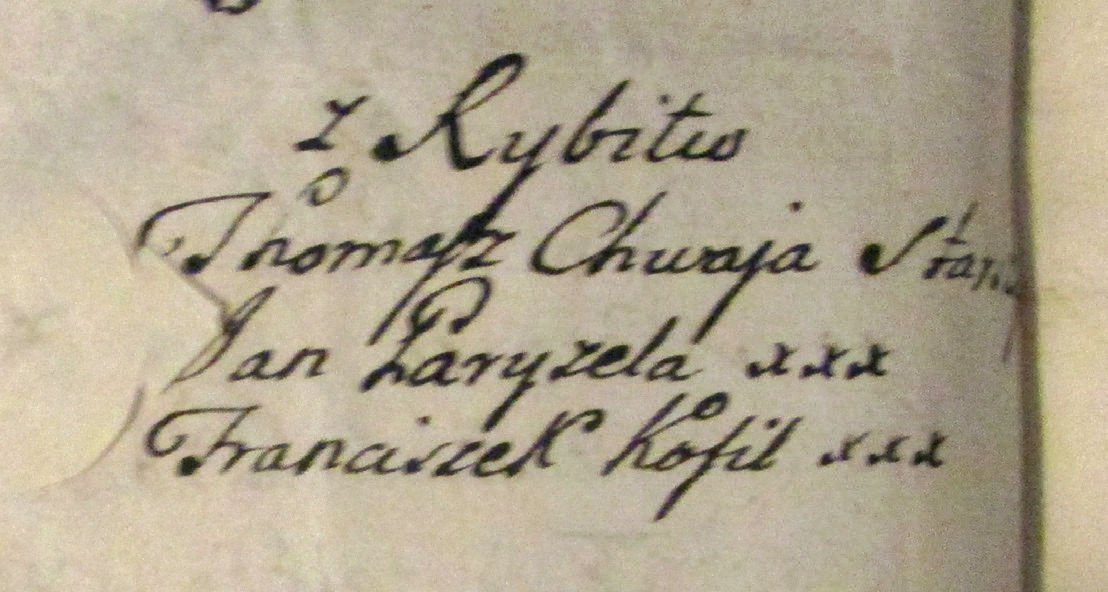 z Rybitw
Thomasz Chwaja
Jan Paryzela xxx
Franciszek Kofil xxx